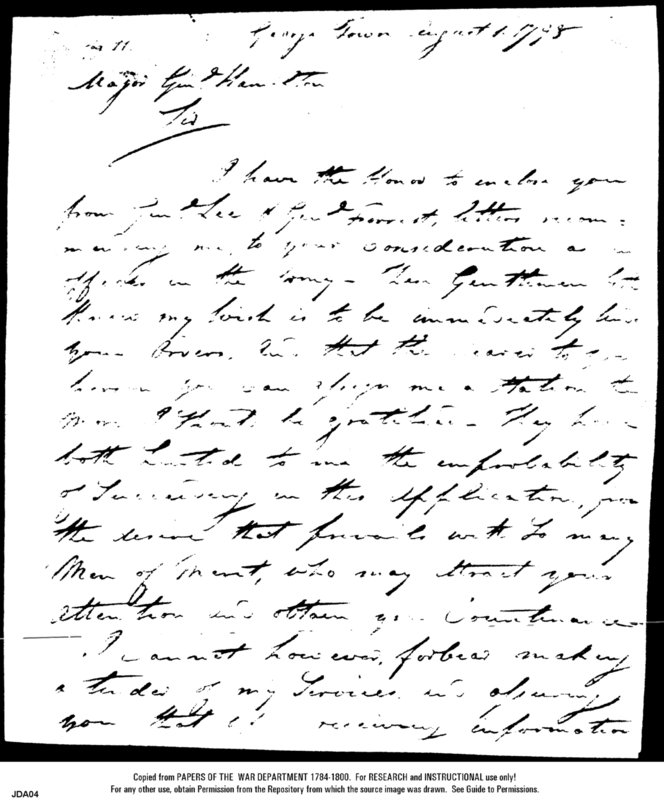 George Town August 1. 1798
Major Genl Hamilton
Sir
I have the Honor to enclose you
from Genl Lee & Genl Forrest, letters recom=
mending me to your consideration as
officer in the Army - These Gentlemen
know my wish is to be immediately
your orders, and that the nearer to
person you can assign me a station the
more I should be gratified - They have
both hinted to me the improbability
of Succeeding in this application, from
the desire that prevails with So many
Men of Merit, who may attract your
attention and obtain your Countenance
I cannot however, forbear making
a tender of my Services, and assuring
you that receiving information
Copied from PAPERS OF THE WAR DEPARTMENT 1784-1800. For RESEARCH and INSTRUCTIONAL use only!
For any other use, obtain Permission from the Repository from which the source image was drawn. See Guide to Permissions.
JDA04